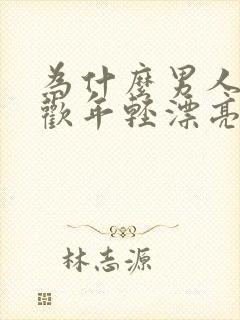 為什麼男人
歡年輕漂亮
林志源